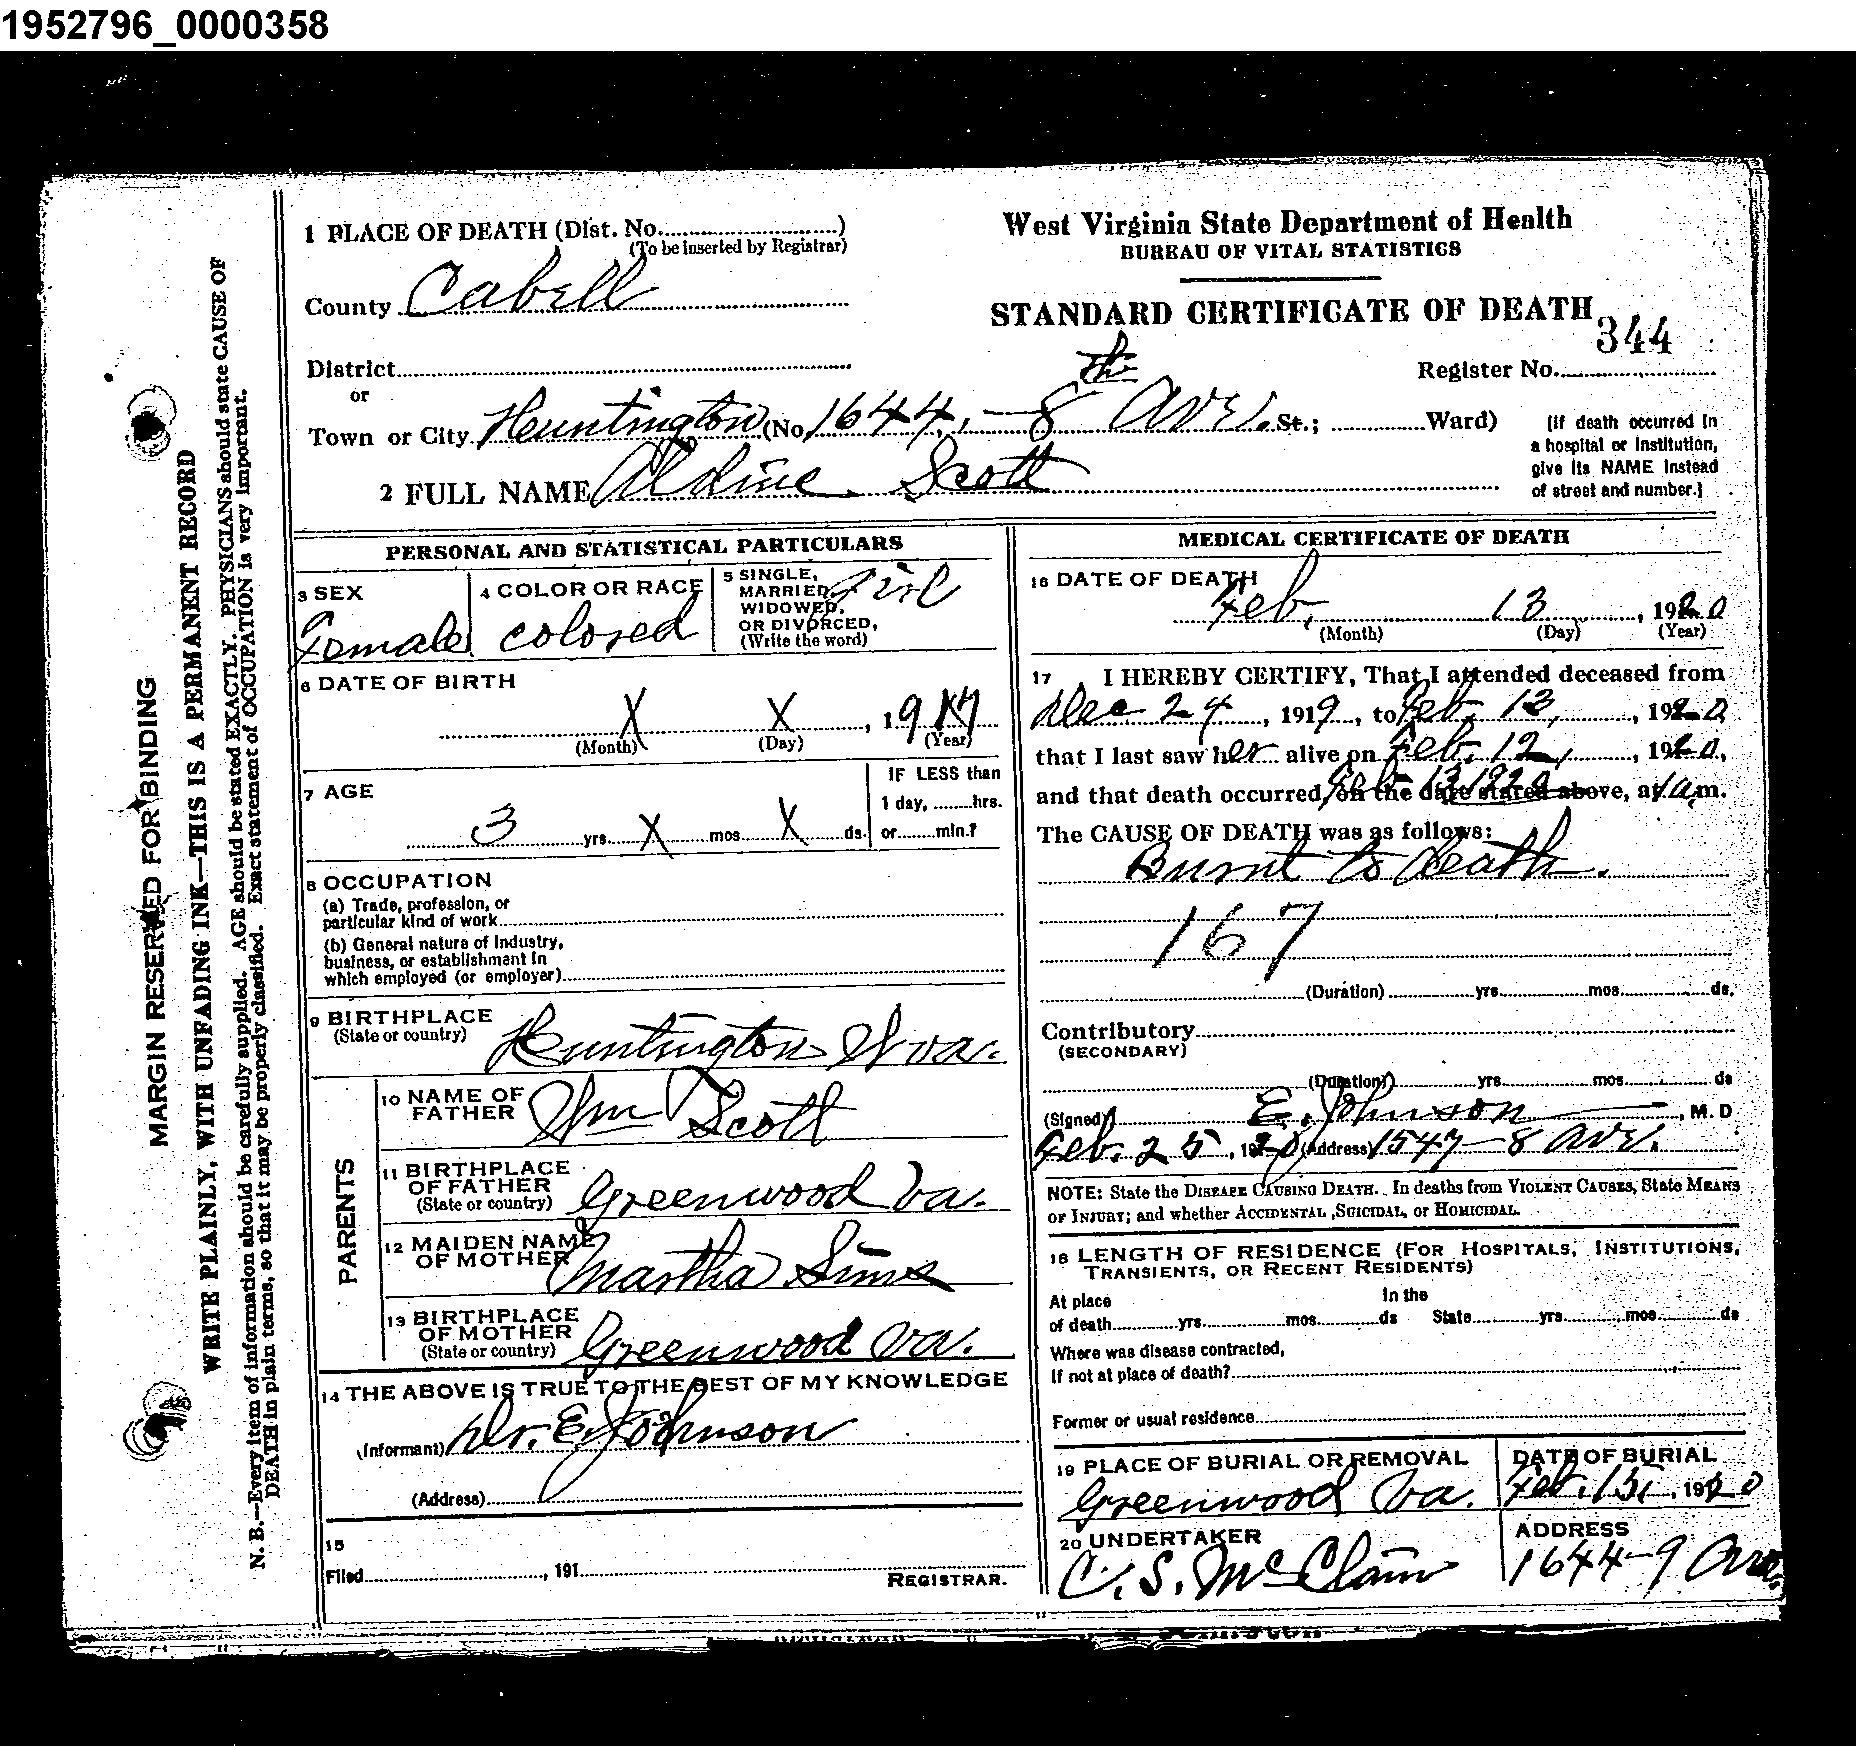 1952796_0000358
1 PLACE OF DEATH (Dist. No..............................)
(To be inserted by Registrar)
County Cabell
District
or
Town or City Huntington (No. 1644, - 8th Ave. St.; ............... Ward)
2 FULL NAME Aldine Scott
West Virginia State Department of Health
BUREAU OF VITAL STATISTICS
STANDARD CERTIFICATE OF DEATH
344
Register No.
(If death occurred in
a hospital or institution,
give its NAME instead
of street and number.)
MARGIN RESERVED FOR BINDING
WRITE PLAINLY, WITH UNFADING INK—THIS IS A PERMANENT RECORD
N. B.—Every item of information should be carefully supplied. AGE should be stated EXACTLY. PHYSICIANS should state CAUSE OF
DEATH in plain terms, so that it may be properly classified. Exact statement of OCCUPATION is very important.
PERSONAL AND STATISTICAL PARTICULARS
3 SEX
Female
4 COLOR OR RACE
colored
5 SINGLE,
MARRIED,
WIDOWED,
OR DIVORCED,
(Write the word)
Girl
6 DATE OF BIRTH
X X , 1917
(Month) (Day) (Year)
7 AGE
3 yrs. X mos. X ds.
IF LESS than
1 day, ........hrs.
or........min.?
8 OCCUPATION
(a) Trade, profession, or
particular kind of work
(b) General nature of Industry,
business, or establishment in
which employed (or employer)
9 BIRTHPLACE
(State or country) Huntington W va.
PARENTS
10 NAME OF
FATHER Wm Scott
11 BIRTHPLACE
OF FATHER
(State or country) Greenwood Va.
12 MAIDEN NAME
OF MOTHER Martha Sims
13 BIRTHPLACE
OF MOTHER
(State or country) Greenwood Va.
14 THE ABOVE IS TRUE TO THE BEST OF MY KNOWLEDGE
(Informant) Dr. E. Johnson
(Address)
15
Filed , 191
REGISTRAR.
MEDICAL CERTIFICATE OF DEATH
16 DATE OF DEATH
Feb. 13, 1920
(Month) (Day) (Year)
17 I HEREBY CERTIFY, That I attended deceased from
Dec 24, 1919, to Feb. 13, 1920
that I last saw her alive on Feb. 12, 1920,
and that death occurred, on the date stated above, at 1 a.m.
Feb 13 1920
The CAUSE OF DEATH was as follows:
Burnt to death.
167
(Duration) yrs. mos. ds.
Contributory
(SECONDARY)
(Duration) yrs. mos. ds
(Signed) E. Johnson , M. D
Feb. 25, 1920 (Address) 1547 - 8 Ave.
NOTE: State the DISEASE CAUSING DEATH. In deaths from VIOLENT CAUSES, State MEANS
OF INJURY; and whether ACCIDENTAL, SUICIDAL, or HOMICIDAL.
18 LENGTH OF RESIDENCE (FOR HOSPITALS, INSTITUTIONS,
TRANSIENTS, OR RECENT RESIDENTS)
At place In the
of death yrs. mos. ds State yrs. mos. ds
Where was disease contracted,
If not at place of death?
Former or usual residence
19 PLACE OF BURIAL OR REMOVAL
Greenwood Va.
DATE OF BURIAL
Feb. 15, 1920
20 UNDERTAKER
C. S. McClain
ADDRESS
1644 - 9 Ave.